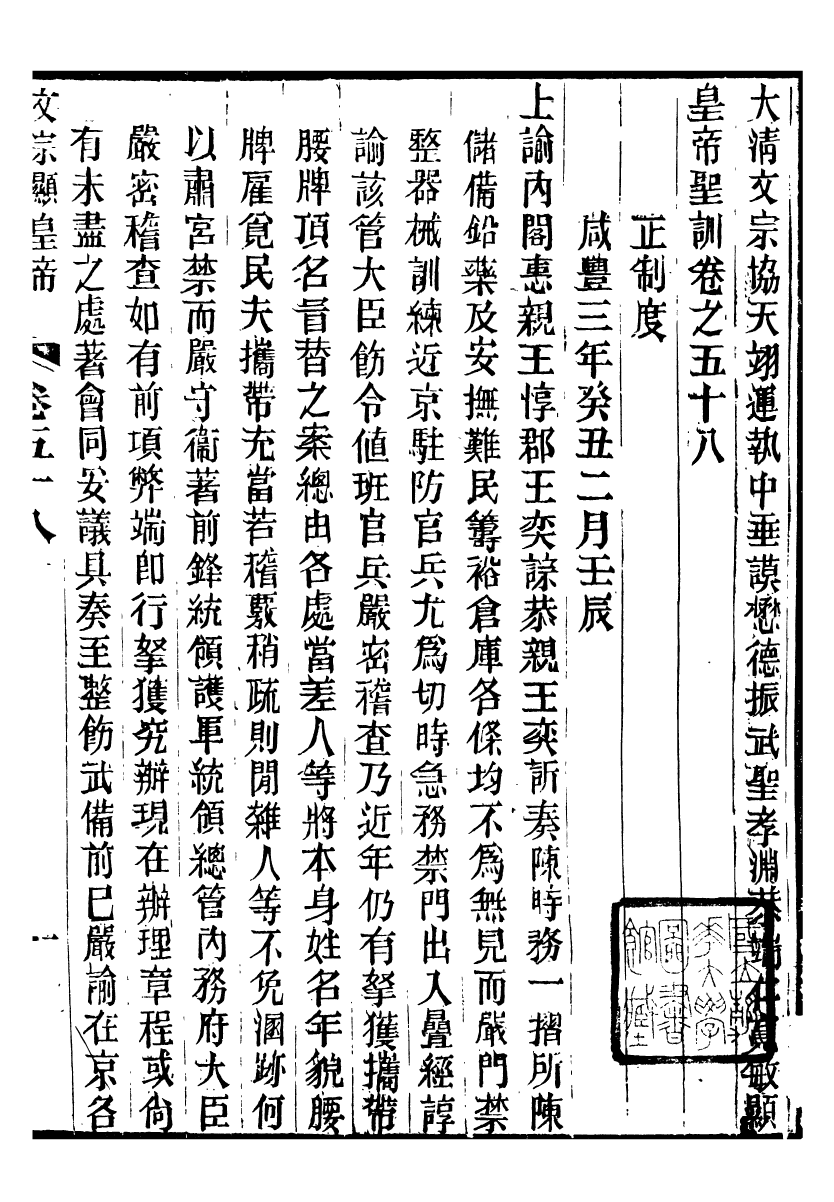 大清文宗協天翊運執中垂謨懋德振武聖孝淵恭端仁寬敏顯
皇帝聖訓卷之五十八
正制度
咸豐三年癸丑二月壬辰
上諭內閣惠親王惇郡王奕誴恭親王奕訢奏陳時務一摺所陳
儲備鉛藥及安撫難民籌裕倉庫各條均不爲無見而嚴門禁
整器械訓練近京駐防官兵尤爲切時急務禁門出入疊經諄
諭該管大臣飭令値班官兵嚴密稽查乃近年仍有拏獲攜帶
腰牌頂名冒替之案總由各處當差人等將本身姓名年貌腰
牌雇覓民夫攜帶充當若稽覈稍疏則閒雜人等不免溷跡何
以肅宮禁而嚴守衞著前鋒統領護軍統領總管內務府大臣
嚴密稽查如有前項弊端卽行拏獲究辦現在辦理章程或尙
有未盡之處著會同妥議具奏至整飭武備前已嚴諭在京各
文宗顯皇帝
卷五十八
一
國立北平大學
圖書
館藏